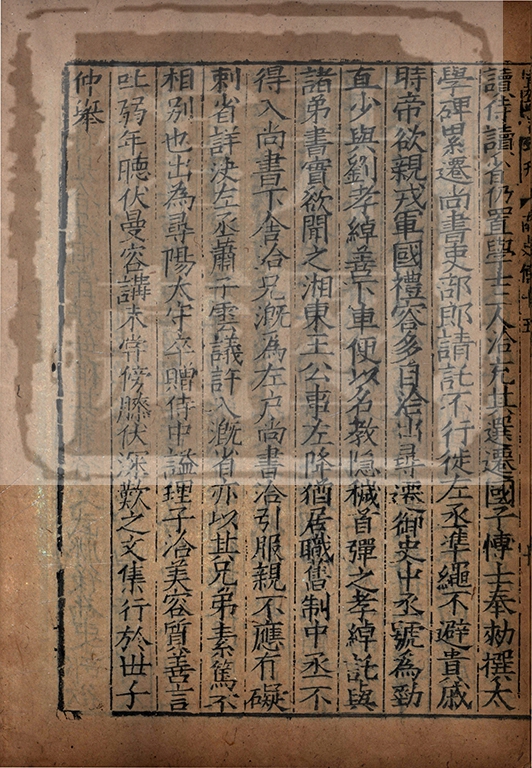 讀侍讀省仍置學士二人洽充其選遷國子博士奉勑撰太
學碑累遷尚書吏部郎請託不行徙左丞準繩不避貴戚
時帝欲親戎軍國禮容多自洽出尋遷御史中丞號為勁
直少與劉孝綽善下車便以名教隱穢首彈之孝綽託與
諸弟書實欲聞之湘東王公事左降猶居職舊制中丞不
得入尚書下舍洽兄溉為左户尚書洽引服親不應有礙
刺省詳決左丞蕭子雲議許入溉省亦以其兄弟素篤不
相別也出為尋陽太守卒贈侍中謚理子洽美容質善言
吐弱年聽伏曼容講未嘗傍膝伏深歎之文集行於世子
仲舉